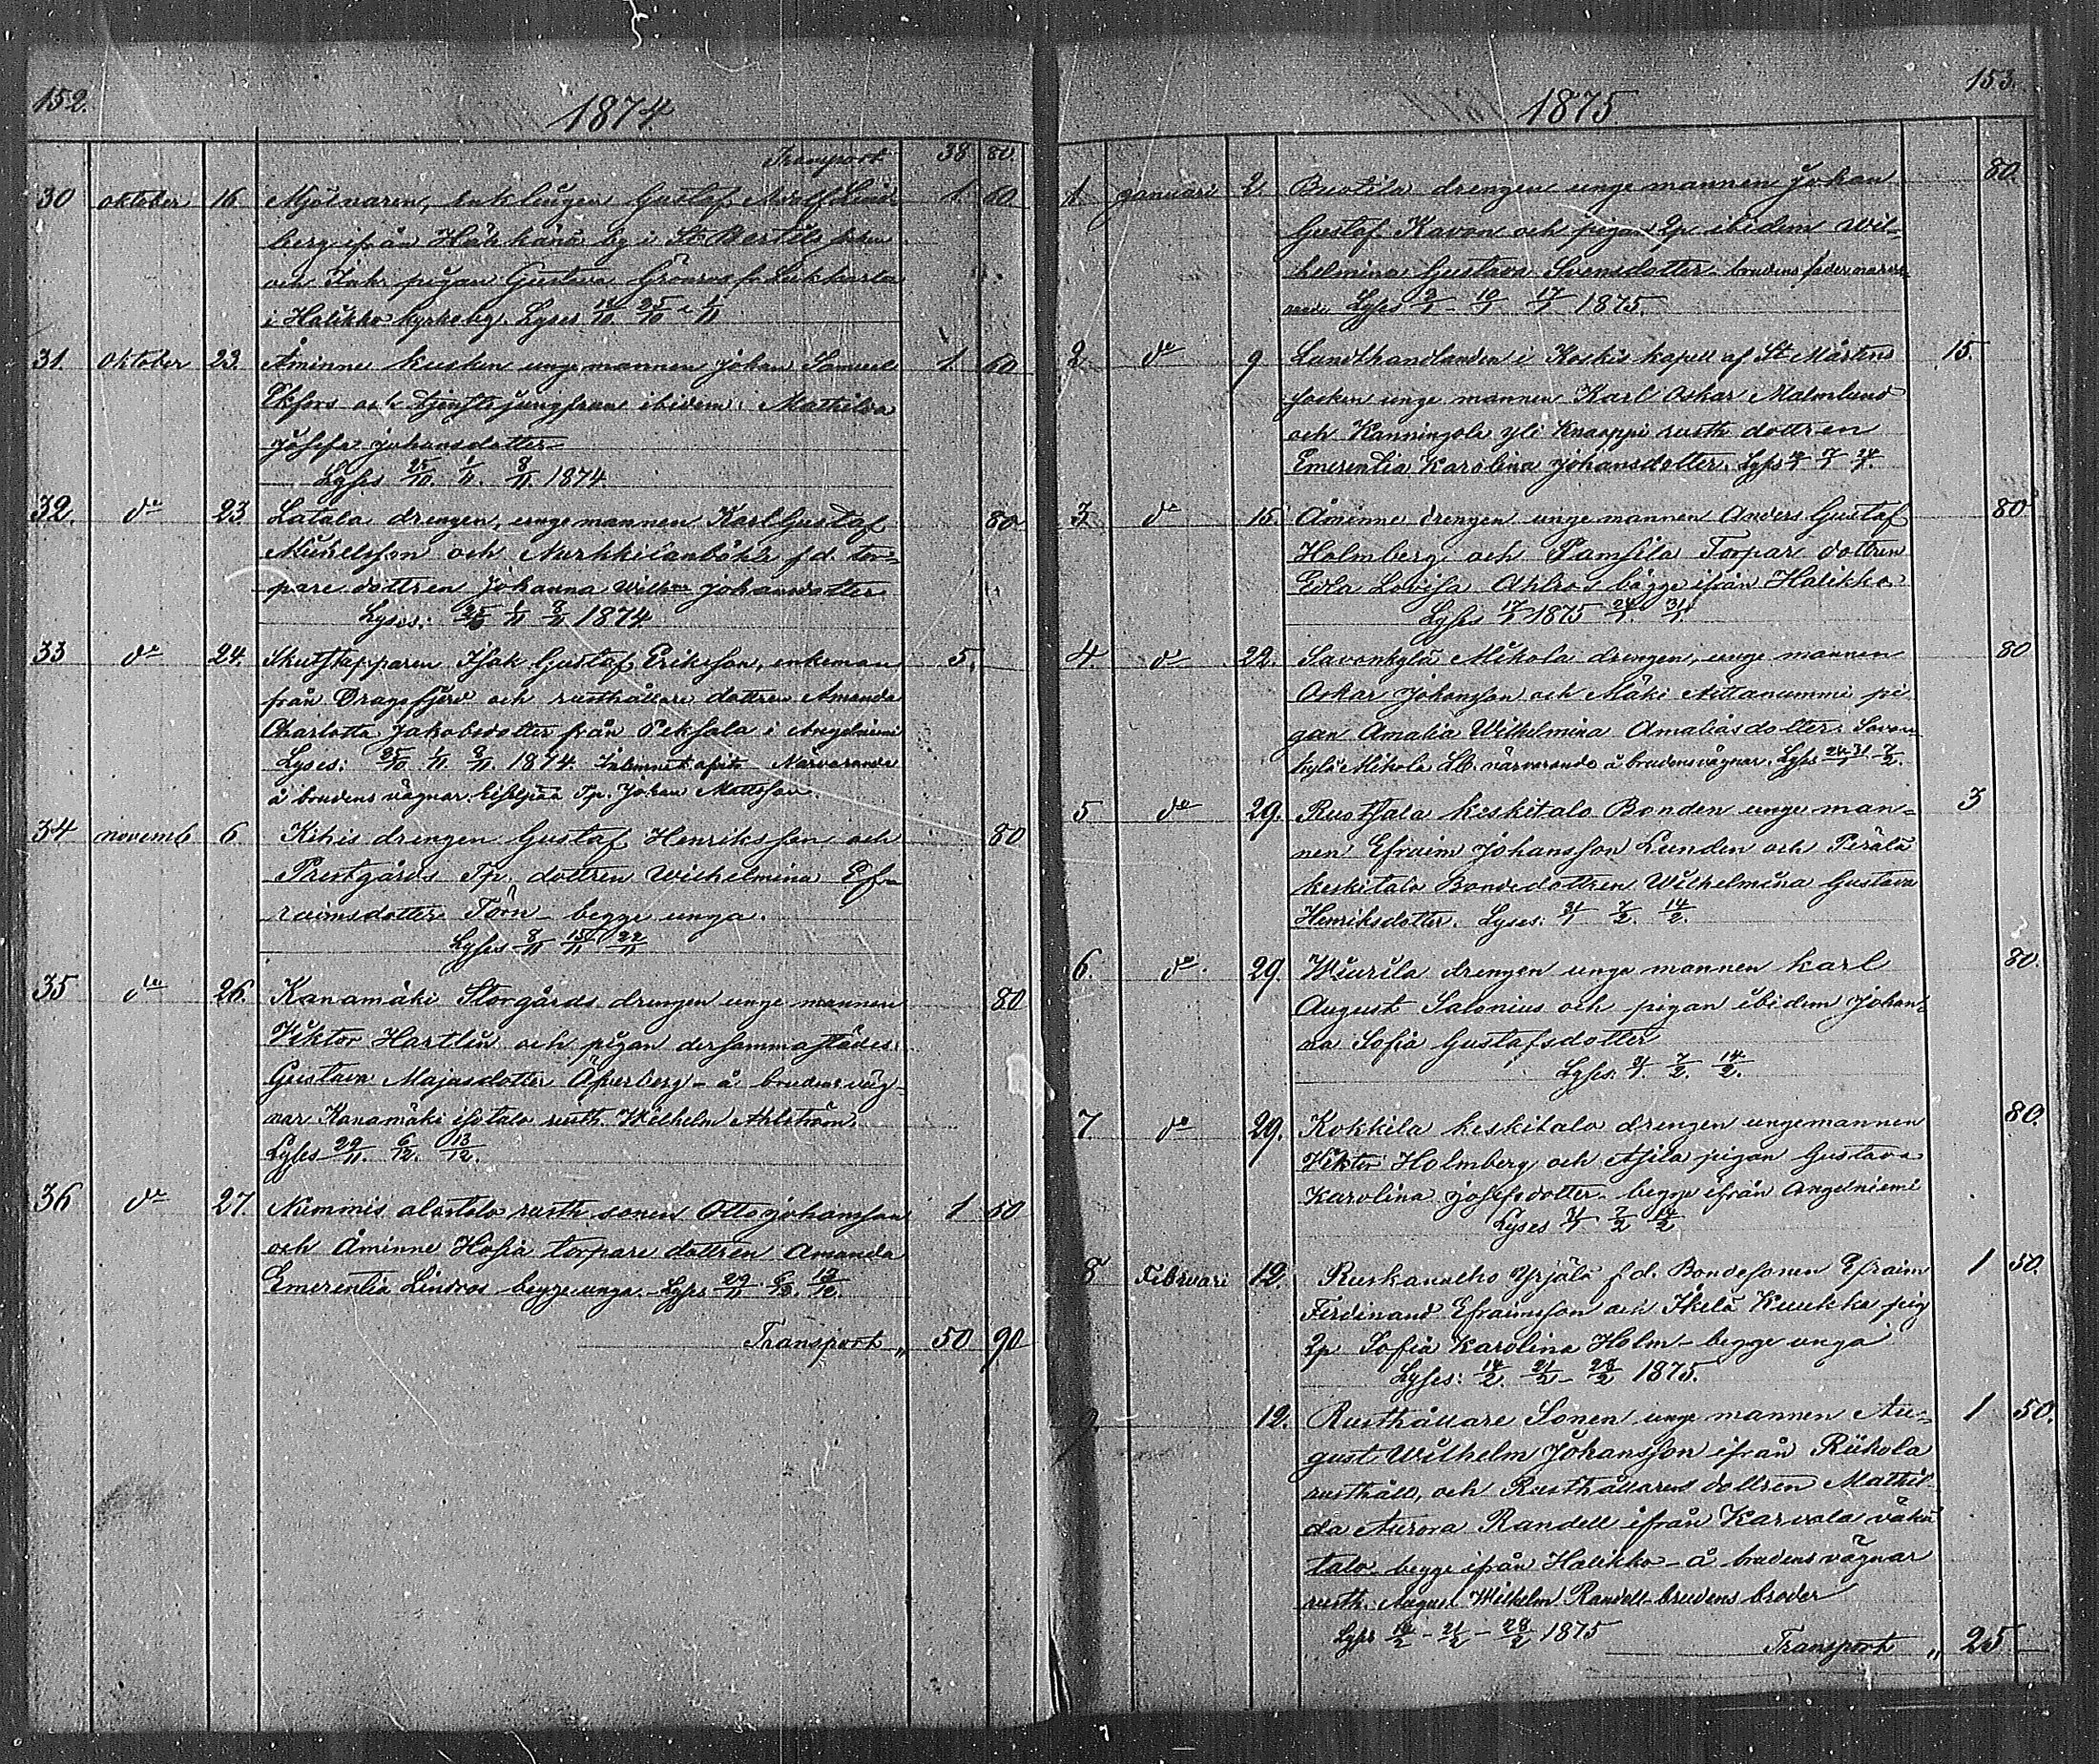 152.
1874.
Transport 38 80.
30 oktober 16. Mjölnaren, enklingen Gustaf Adolf Lind- 1 60
berg ifrån Häkkänä by i St Bertils socken
och Inh. pigan Gustava Grönros fr.
i Halikko kyrkoby. Lyses 18/10 25/10 1/11
31. Oktober 23. Åminne kusken unge mannen Johan Samuel 1 60
Ekfors och tjenstejungfrun ibidem Mathilda
Josefa Johansdotter
Lyses 25/10. 1/11. 8/11 1874.
32. do 23 Latala drengen, unge mannen Karl Gustaf 80
Mickelsson och f.d. tor-
pare dottren Johanna Wilhna Johansdotter
Lyses: 25/10 1/11 8/11 1874
33 do 24. Isak Gustaf Eriksson, enkeman 5.
från Dragsfjerd och rusthållare dottren Amanda
Charlotta Jakobsdotter från Peksala i Angelniemi
Lyses: 25/10 1/11 8/11. 1874. Närvarande
å brudens vägnar. Tp. Johan Mattsson.
34 novemb 6. Kihis drengen Gustaf Henriksson och 80
Prestgårds Tp. dottren Wilhelmina Ef-
raimsdotter Törn - begge unga.
Lyses 8/11 15/11 22/11
35 do 26. Kanamäki Storgårds drengen unge mannen 80
Viktor Hartlin och pigan dersammastädes
Gustava Majasdotter Öfverberg - å brudens väg-
nar Kanamäki isotalo rusth. Wilhelm Ahlström.
Lyses 29/11. 6/12. 13/12.
36 do 27. Nummis alastalo rusth. sonen Otto Johansson 1 50
och Åminne Hosia torpare dottren Amanda
Emerentia Lindros begge unga. Lyses 29/11 6/12. 13/12.
Transport „ 50 90
153.
1875.
1. Januari 2 drengen unge mannen Johan 80
Gustaf Kavon och pigan Qp ibidem Wil-
helmina Gustava Svensdotter - brudens fader närva-
rande Lyses 3/1 - 10/1 17/1 1875.
2 do 9 Landthandlanden i Koskis kapell af St Mårtens 15
socken unge mannen Karl Oskar Malmlund
och Kanningola yli Knaappi rusth dottren
Emerentia Karolina Johansdotter. Lyses
3 do 15 Åminne drengen unge mannen Anders Gustaf 80
Holmberg och Pamsila Torpar dottren
Edla Lovisa Ahlros bägge ifrån Halikko
Lyses 17/1 1875 24/1. 31/1.
4. do 22. Savonkylä Mikola drengen, unge mannen 80
Oskar Johansson och Mäki Aittanummi pi-
gan Amalia Wilhelmina Amaliasdotter. Savon-
kylä Mikola närvarande å brudens vägnar. Lyses 24/1 31/1 7/2.
5 do 29. Ruotsala keskitalo Bonden unge man- 3
nen Efraim Johansson Lunden och Perälä
keskitalo Bondedottren Wilhelmina Gustava
Henriksdotter. Lyses. 31/1 7/2. 14/2.
6. do. 29. Wiurila drengen unge mannen Karl 80.
August Salonius och pigan ibidem Johan-
na Sofia Gustafsdotter
Lyses. 31/1. 7/2. 14/2.
7 do 29. Kokkila keskitalo drengen ungemannen 80.
Viktor Holmberg och Asila pigan Gustava
Karolina Josefsdotter. begge ifrån Angelniemi
Lyses 31/1 7/2 14/2
8 Februari 12. Ruskanalho Yrjälä f.d. Bondesonen Efraim 1 50.
Ferdinand Efraimsson och Ikelä Kuukka pig
Qp Sofia Karolina Holm - begge unga
Lyses: 14/2. 21/2 - 28/2 1875.
9 12. Rusthållare Sonen unge mannen Au- 1 50.
gust Wilhelm Johansson ifrån Riikola
rusthåll, och Rusthållarens dottren Mathil-
da Aurora Randell ifrån Karvala vähä
talo begge ifrån Halikko - å brudens vägnar
rusth. August Wilhelm Randell brudens broder
Lyses 14/2 - 21/2 - 28/2 1875
Transport „ 25 -